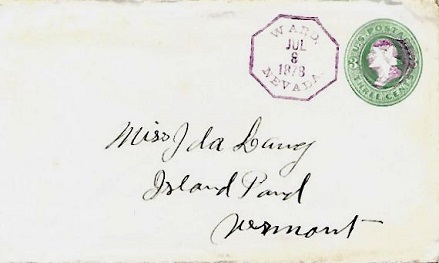 WARD,
JUL
8
1878
NEVADA.
U.S. POSTAGE
THREE CENTS
Miss Ida Lang
Island Pond
Vermont